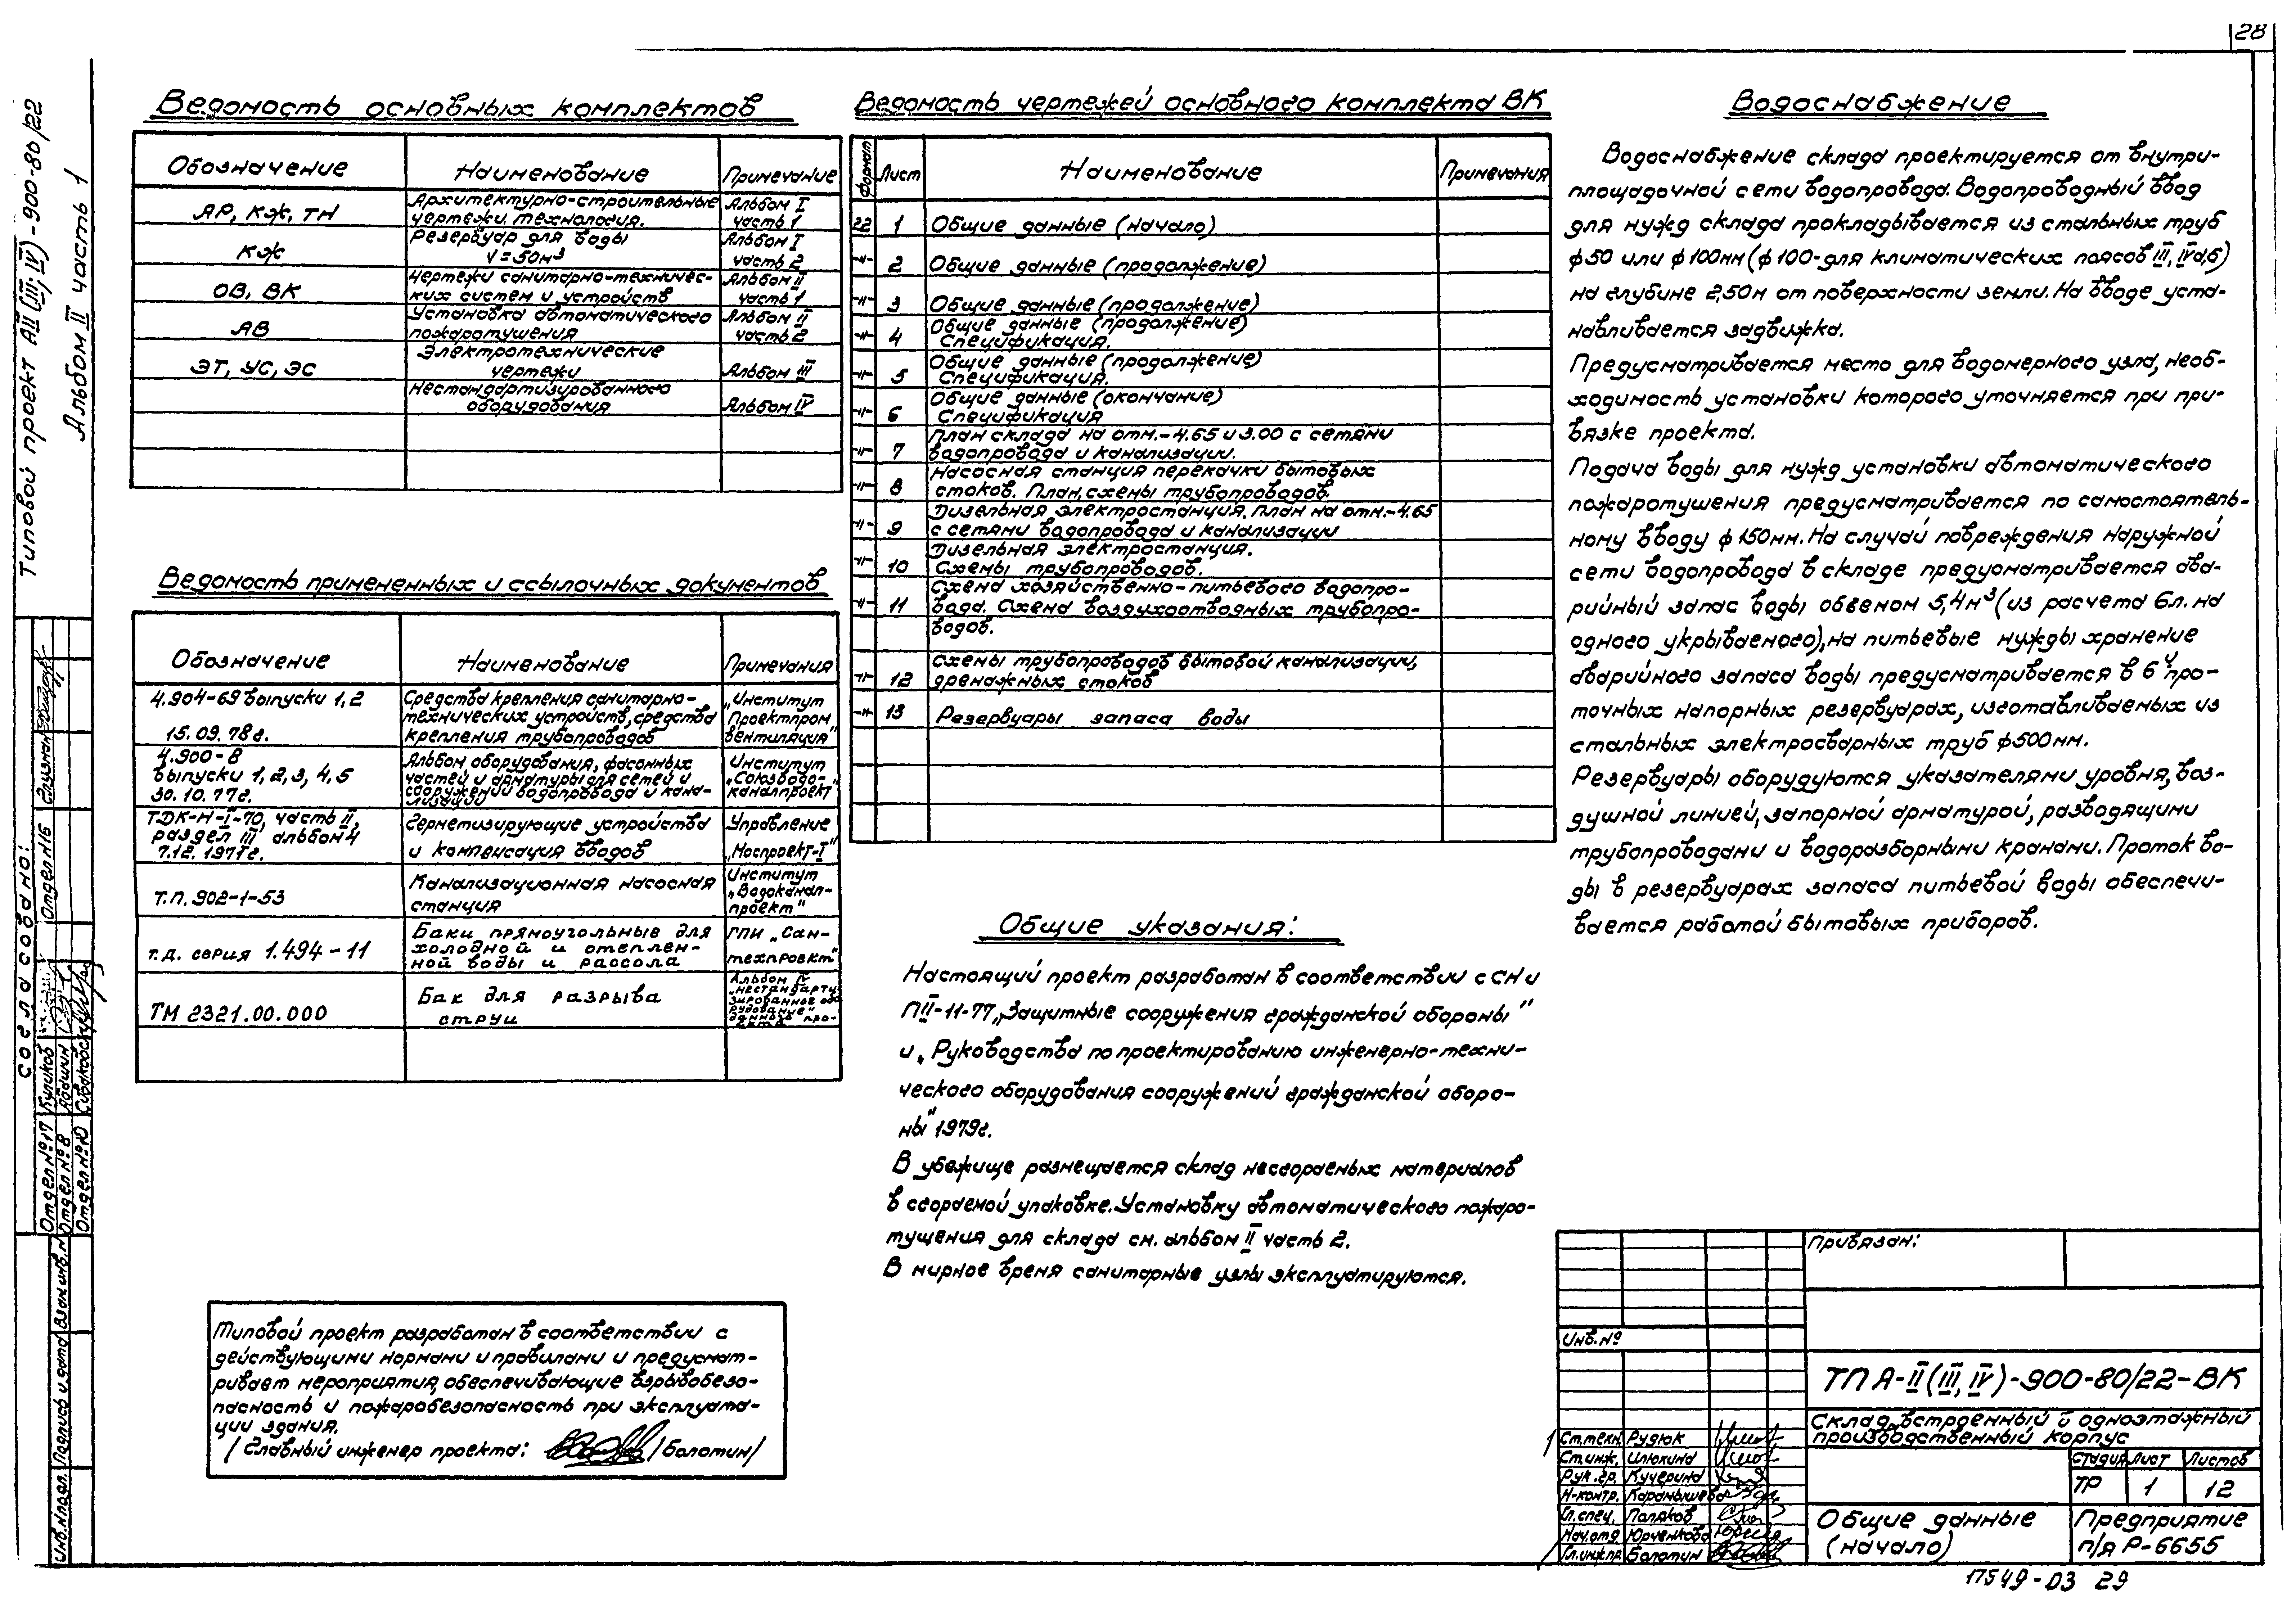 28
Типовой проект АII (III, IV) - 900-80/22
Альбом II часть 1
Ведомость основных комплектов
Обозначение Наименование Примечание
АР, КЖ, ТН Архитектурно-строительные чертежи, технология. Альбом I часть 1
КЖ Резервуар для воды V=50м³ Альбом I часть 2
ОВ, ВК Чертежи санитарно-технических систем и устройств Альбом II часть 1
АВ Установка автоматического пожаротушения Альбом II часть 2
ЭТ, УС, ЭС Электротехнические чертежи Альбом III
Нестандартизированного оборудования Альбом IV
Ведомость примененных и ссылочных документов
Обозначение Наименование Примечания
4.904-69 выпуски 1, 2 15.09.78г. Средства крепления санитарно-технических устройств, средства крепления трубопроводов „Институт Проектпромвентиляция"
4.900-8 выпуски 1, 2, 3, 4, 5 30.10.77г. Альбом оборудования, фасонных частей и арматуры для сетей и сооружений водопровода и канализации Институт „Союзводоканалпроект"
ТДК-Н-I-70, часть II, раздел III альбом 4 7.12.1971г. Герметизирующие устройства и компенсация вводов Управление „Моспроект-I"
Т.П. 902-1-53 Канализационная насосная станция Институт „Водоканал-проект"
т.д. серия 1.494-11 Баки прямоугольные для холодной и отепленной воды и рассола ГПИ „Сантехпроект"
ТМ 2321.00.000 Бак для разрыва струи Альбом IV „нестандартизированное оборудование" данного проекта
Типовой проект разработан в соответствии с
действующими нормами и правилами и предусмат-
ривает мероприятия, обеспечивающие взрывобезо-
пасность и пожаробезопасность при эксплуата-
ции здания.
/ Главный инженер проекта: /Болотин/
Ведомость чертежей основного комплекта ВК
Формат Лист Наименование Примечания
22 1 Общие данные (начало)
-"- 2 Общие данные (продолжение)
-"- 3 Общие данные (продолжение)
-"- 4 Общие данные (продолжение) Спецификация.
-"- 5 Общие данные (продолжение) Спецификация.
-"- 6 Общие данные (окончание) Спецификация
-"- 7 План склада на отм.-4.65 и 3.00 с сетями водопровода и канализации.
-"- 8 Насосная станция перекачки бытовых стоков. План, схемы трубопроводов.
-"- 9 Дизельная электростанция. План на отм.-4.65 с сетями водопровода и канализации
-"- 10 Дизельная электростанция. Схемы трубопроводов.
-"- 11 Схема хозяйственно-питьевого водопровода. Схема воздухоотводных трубопроводов.
-"- 12 Схемы трубопроводов бытовой канализации, дренажных стоков
-"- 13 Резервуары запаса воды
Общие указания:
Настоящий проект разработан в соответствии с СНи
П II-11-77 „Защитные сооружения гражданской обороны"
и „Руководства по проектированию инженерно-техни-
ческого оборудования сооружений гражданской оборо-
ны" 1979г.
В убежище размещается склад несгораемых материалов
в сгораемой упаковке. Установку автоматического пожаро-
тушения для склада см. альбом II часть 2.
В мирное время санитарные узлы эксплуатируются.
Водоснабжение
Водоснабжение склада проектируется от внутри-
площадочной сети водопровода. Водопроводный ввод
для нужд склада прокладывается из стальных труб
ф50 или ф100мм (ф100-для климатических поясов III, IVа,б)
на глубине 2,50м от поверхности земли. На вводе уста-
навливается задвижка.
Предусматривается место для водомерного узла, необ-
ходимость установки которого уточняется при при-
вязке проекта.
Подача воды для нужд установки автоматического
пожаротушения предусматривается по самостоятель-
ному вводу ф150мм. На случай повреждения наружной
сети водопровода в складе предусматривается ава-
рийный запас воды объемом 5,4м³ (из расчета 6л. на
одного укрываемого), на питьевые нужды хранение
аварийного запаса воды предусматривается в 6 про-
точных напорных резервуарах, изготавливаемых из
стальных электросварных труб ф500мм.
Резервуары оборудуются указателями уровня, воз-
душной линией, запорной арматурой, разводящими
трубопроводами и водоразборными кранами. Проток во-
ды в резервуарах запаса питьевой воды обеспечи-
вается работой бытовых приборов.
Привязан:
Инв.№
ТП А-II (III, IV)-900-80/22-ВК
Склад, встроенный в одноэтажный
производственный корпус
Стадия Лист Листов
ТР 1 12
Общие данные
(начало)
Предприятие
п/я Р-6655
Ст.техн. Рудюк
Ст.инж. Илюхина
Рук.гр. Кучерина
Н-контр. Карамышева
Гл.спец. Поляков
Нач.отд. Юрченкова
Гл.инж.пр. Болотин
17549-03 29
Согласовано:
Отдел №16
Отдел №17 Куликов
Отдел №8 Абашин
Отдел №10
Взам.инв.№
Подпись и дата
Инв.№подл.